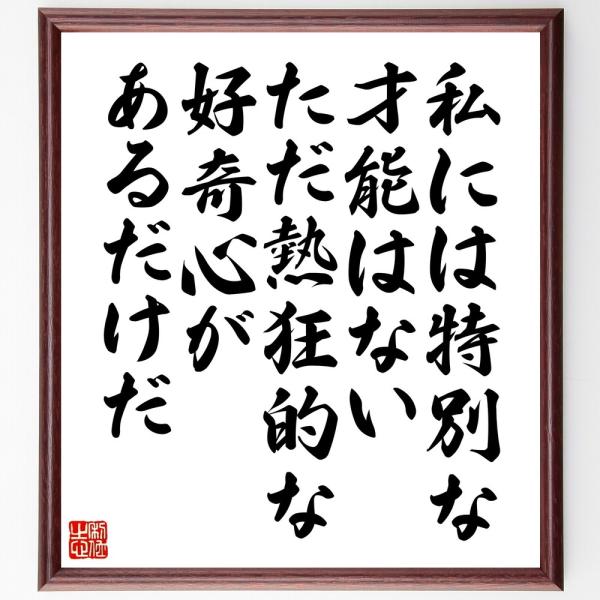 私には特別な
才能はない
ただ熱狂的な
好奇心が
あるだけだ